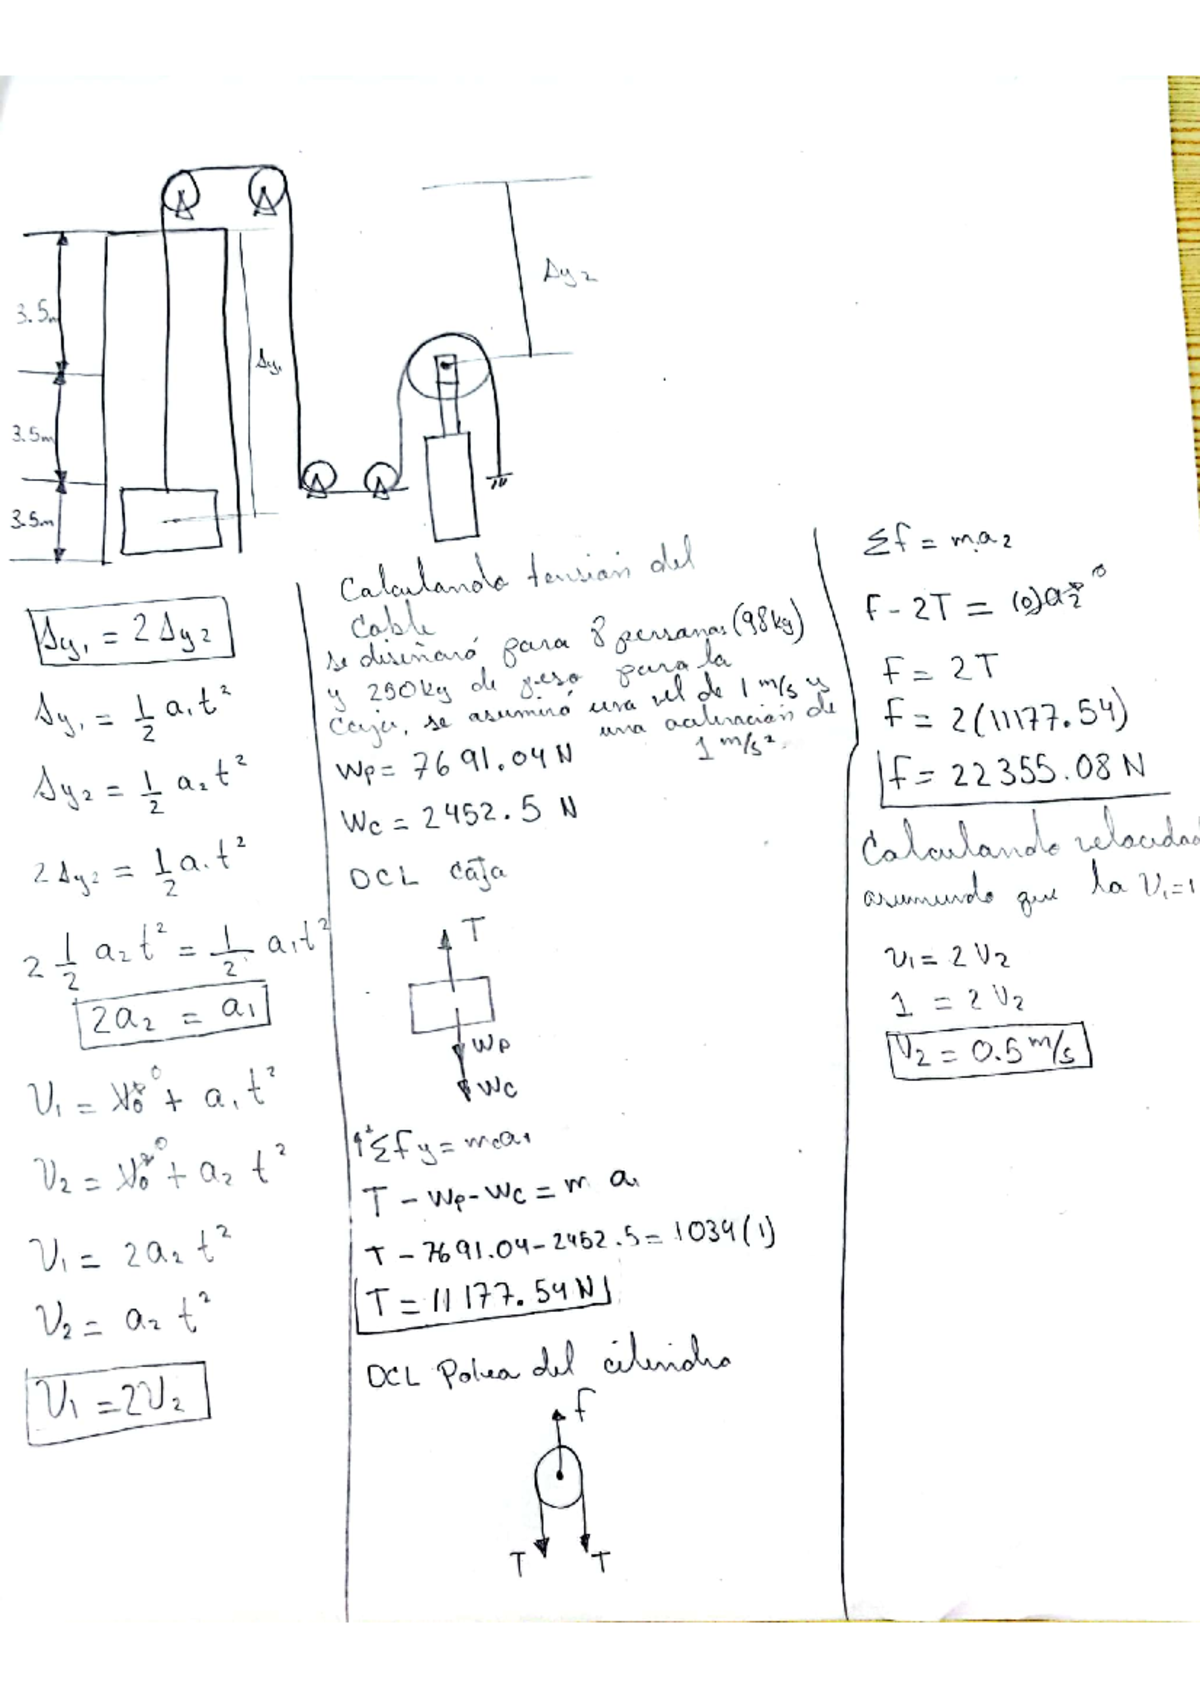 3.5m
3.5m
3.5m
Δy₁
Δy₂
Δy₁ = 2Δy₂
Δy₁ = 1/2 a₁t²
Δy₂ = 1/2 a₂t²
2Δy₂ = 1/2 a₁t²
2 1/2 a₂t² = 1/2 a₁t²
2a₂ = a₁
V₁ = V₀ ⁰ + a₁t²
V₂ = V₀ ⁰ + a₂t²
V₁ = 2a₂t²
V₂ = a₂t²
V₁ = 2V₂
Calculando tension del
Cable
se diseñará para 8 personas (98kg)
y 250kg de peso para la
Caja, se asumirá una vel de 1 m/s y
una aceleración de
1 m/s².
Wp = 7691.04 N
Wc = 2452.5 N
DCL Caja
T
Wp
Wc
↑⁺Σfy = mca₁
T - Wp - Wc = m a₁
T - 7691.04 - 2452.5 = 1034(1)
T = 11177.54 N
DCL Polea del cilindro
f
T T
Σf = m.a₂
F - 2T = (0)a₂ ⁰
F = 2T
F = 2(11177.54)
F = 22355.08 N
Calculando velocidad
asumiendo que la V₁=1
V₁ = 2V₂
1 = 2V₂
V₂ = 0.5 m/s